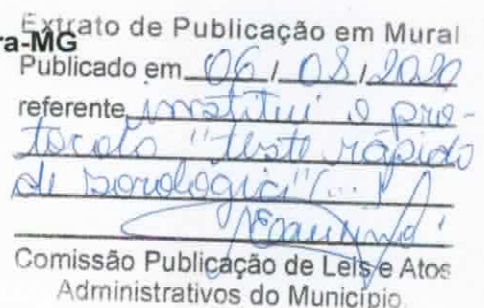 Extrato de Publicação em Mural
ra-MG
Publicado em 06 / 08 / 2020
referente institui o pro-
tocolo "teste rápido
de sorologia" (...)
Comissão Publicação de Leis e Atos
Administrativos do Município.